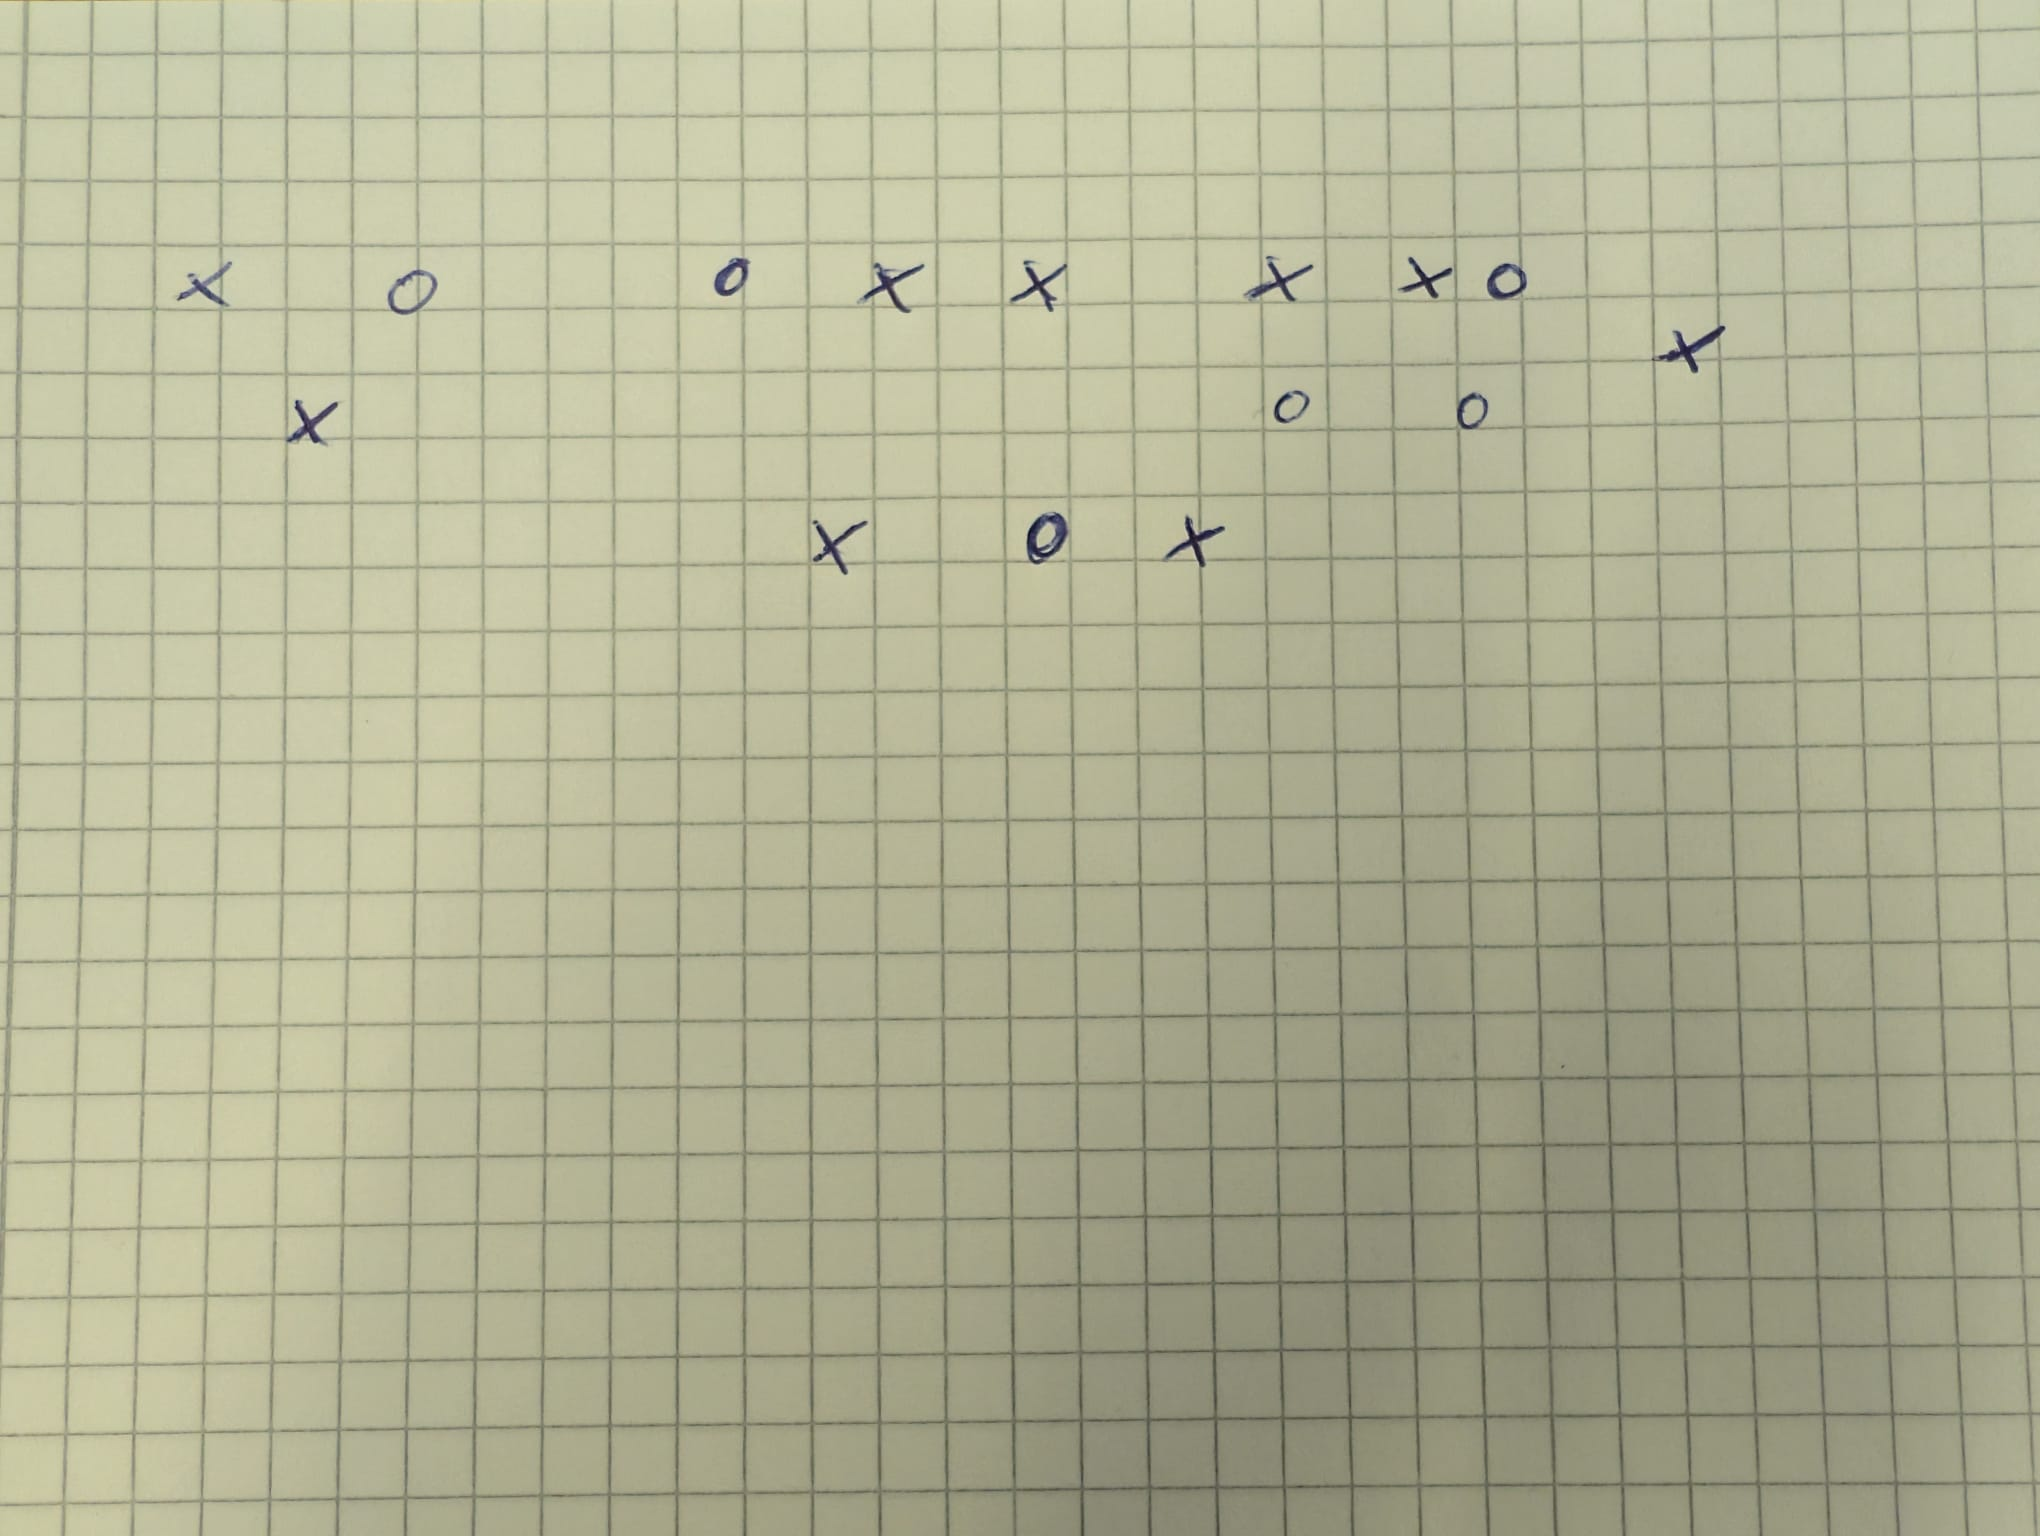 x o o x x x x o
x
x o o
x o x